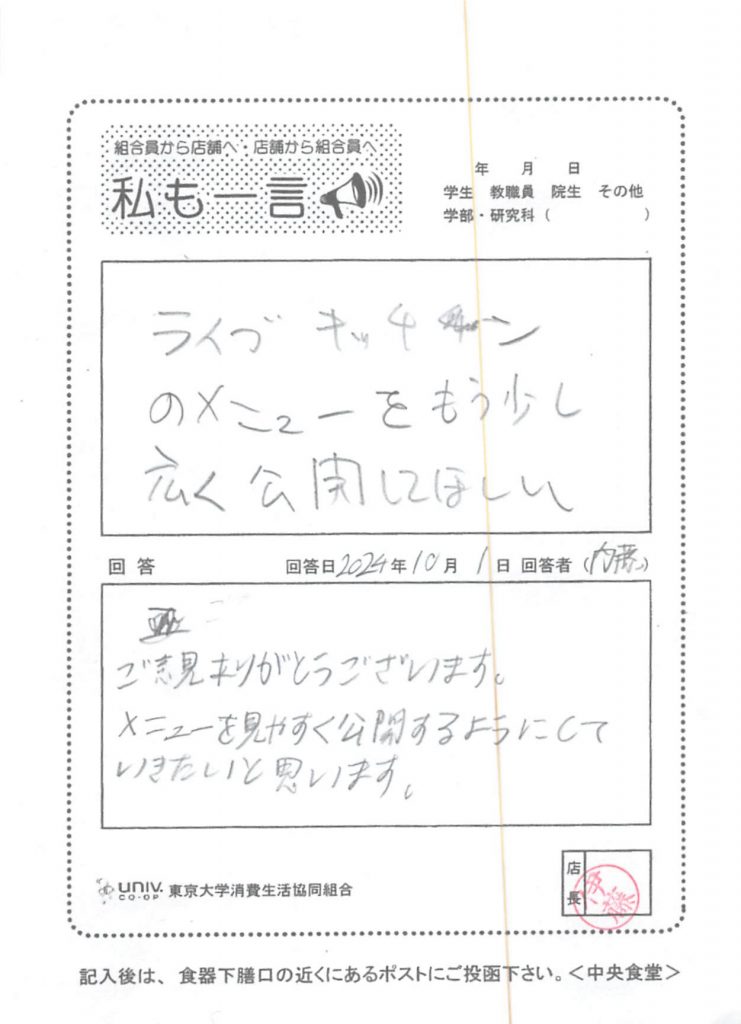 組合員から店舗へ・店舗から組合員へ
私も一言
年 月 日
学生 教職員 院生 その他
学部・研究科 ( )
ライブ キッチン
のメニューをもう少し
広く公開してほしい
回答 回答日2024年10月1日 回答者(内藤)
ご意見ありがとうございます。
メニューを見やすく公開するようにして
いきたいと思います。
UNIV. CO-OP 東京大学消費生活協同組合
店長
伊藤
記入後は、食器下膳口の近くにあるポストにご投函下さい。<中央食堂>